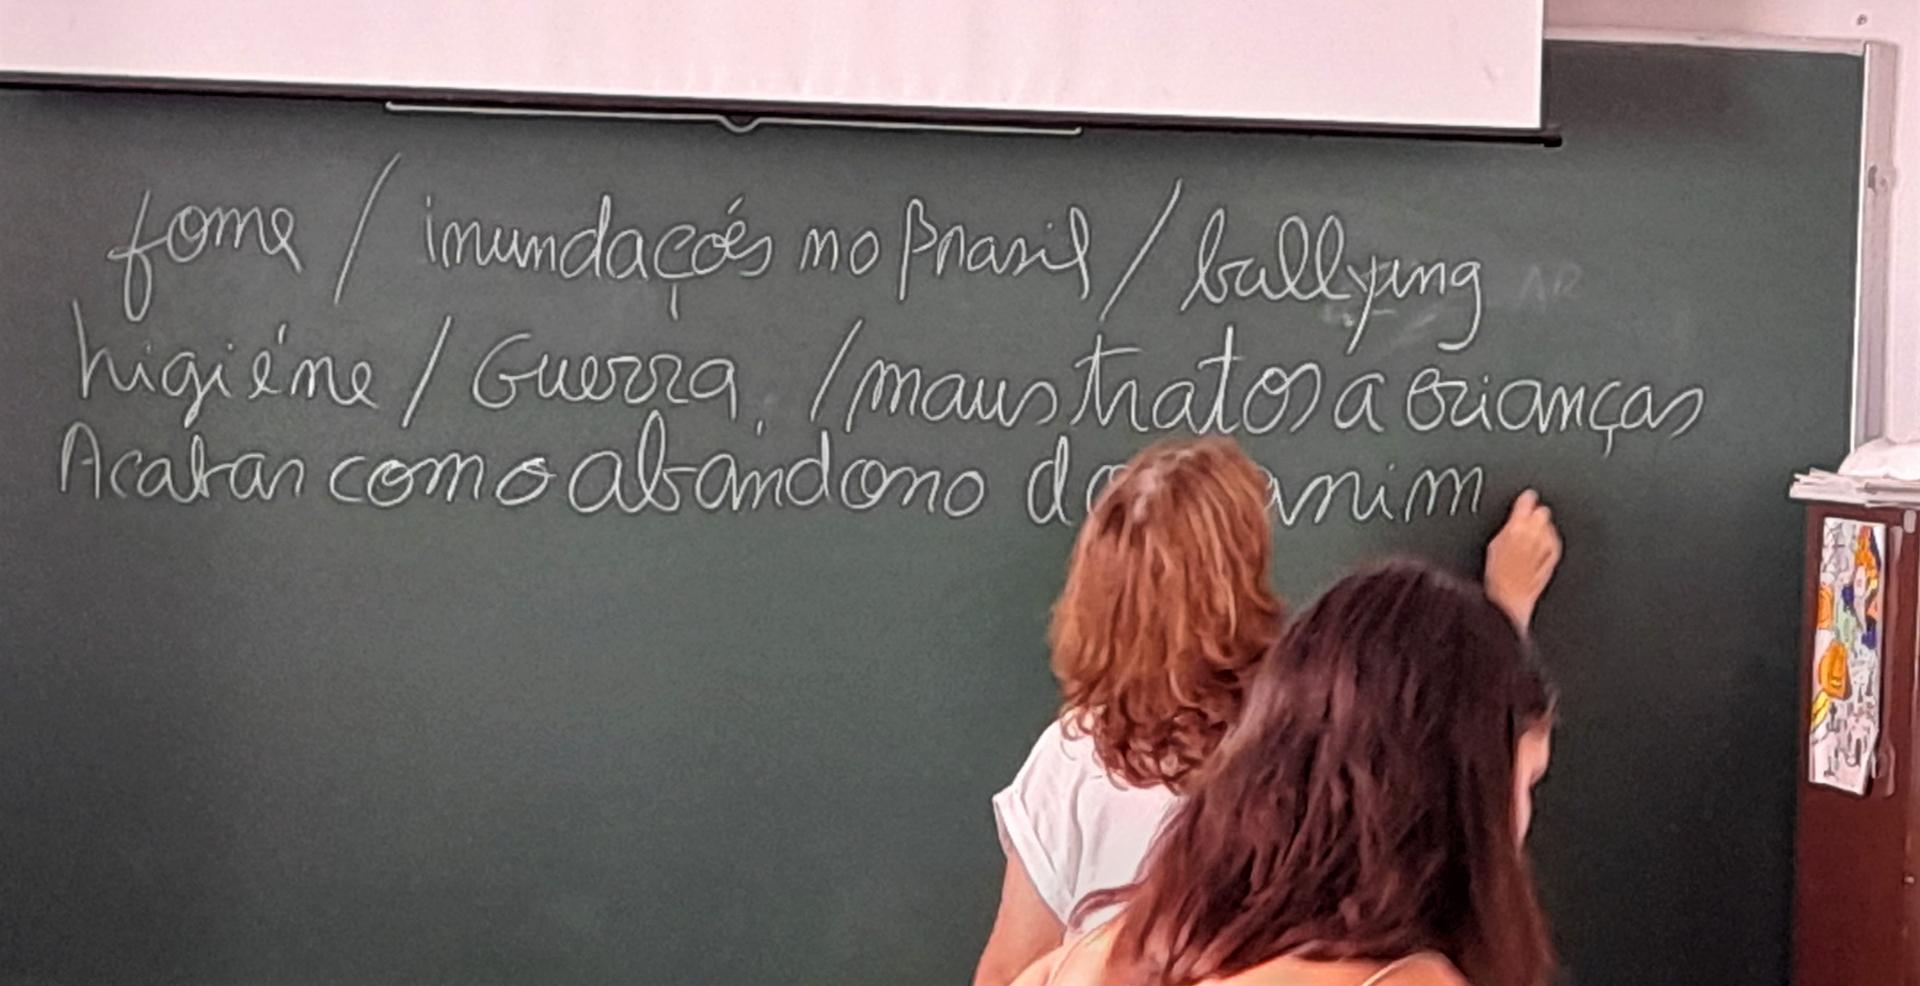 fome / inundações no Brasil / bullying
higiéne / Guerra, / maus tratos a crianças
Acabar com o abandono anim